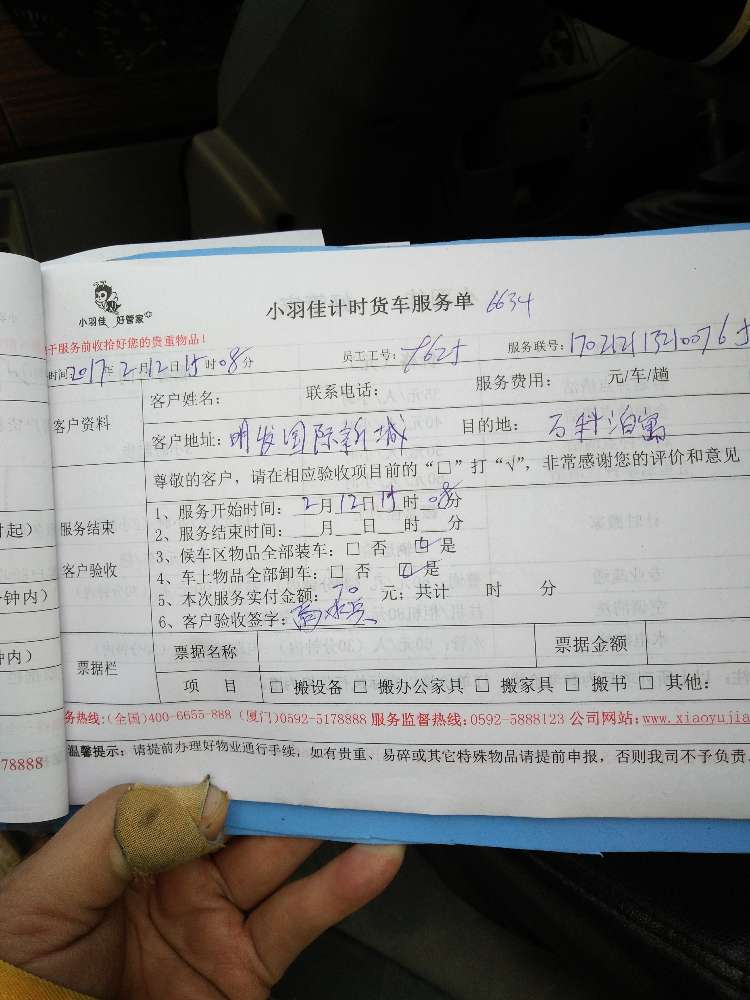 小羽佳 好管家
小羽佳计时货车服务单 6634
于服务前收拾好您的贵重物品！
时间2017年2月12日15时08分 员工工号： 服务联号：
客户资料 客户姓名： 联系电话： 服务费用： 元/车/趟
客户地址：明发国际新城 目的地：万科泊寓
尊敬的客户，请在相应验收项目前的“□”打“√”，非常感谢您的评价和意见
服务结束
客户验收
1、服务开始时间：2月12日15时08分
2、服务结束时间：___月___日___时___分
3、候车区物品全部装车：□ 否 ☑ 是
4、车上物品全部卸车：□ 否 ☑ 是
5、本次服务实付金额：70 元；共计 时 分
6、客户验收签字：
票据栏 票据名称 票据金额
项 目 □ 搬设备 □ 搬办公家具 □ 搬家具 □ 搬书 □ 其他：
务热线：(全国)400-6655-888 (厦门)0592-5178888 服务监督热线：0592-5888123 公司网站：www.xiaoyujia
温馨提示：请提前办理好物业通行手续，如有贵重、易碎或其它特殊物品请提前申报，否则我司不予负责。
时起）
钟内）
钟内）
78888